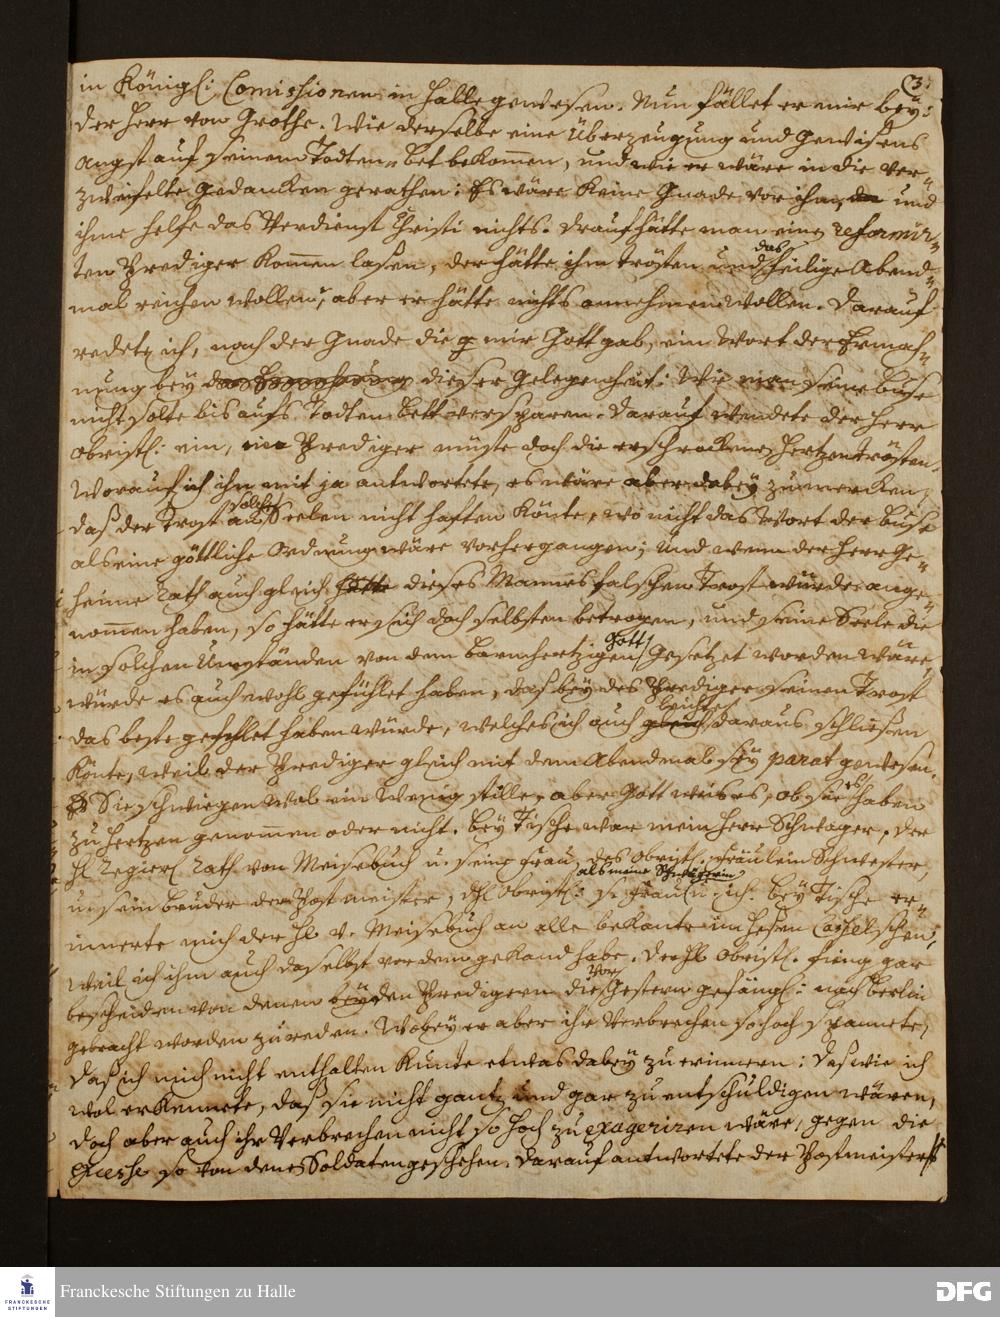 3.
in Königl: Comissionen in Halle gewesen. Nun fället er mir bey:
der Herr von Grothe. Wie derselbe eine Überzeugung und Gewissens
Angst auf seinem Todten-bet bekommen, und wie er wäre in die ver-
zweifelte Gedancken gerathen: Es wäre keine Gnade vor ihm, und
ihme helfe das Verdienst Christi nichts. Drauf hätte man einen reformir-
ten Prediger kommen lasen, der hätte ihn trösten und das heilige Abend-
mal reichen wollen, aber er hätte nichts annehmen wollen. Darauf
redete ich, nach der Gnade die mir Gott gab, ein Wort der Ermah-
nung bey dieser Gelegenheit: Wie man seine buse
nicht solte bis aufs Todten bett verspahren. Darauf wendete der Herr
Obristl: ein, ein Prediger müste doch die erschrockene Hertzen trösten,
Worauf ich ihm mit ja antwortete, es wäre aber dabey zu mercken,
daß der Trost an solchen Seelen nicht haften könte, wo nicht das Wort der buse
als eine göttliche Ordnung wäre vorhergangen; Und wenn der Herr Ge-
heime Rath auch gleich dieses Mannes falschen Trost würde ange-
nommen haben, so hätte er sich doch selbsten betrogen, und seine Seele die
in solchen Umständen von dem barmhertzigen Gott gesetzet worden wäre
würde es auch wohl gefühlet haben, das bey des Prediger seinen Trost
das beste gefehlet haben würde, welches ich auch leichte daraus schließen
könte, weil der Prediger gleich mit dem Abendmal sey parat gewesen.
Sie schwiegen wol ein wenig stille, aber Gott weis es, ob sie es haben
zu Hertzen genommen oder nicht. Bey Tische war mein Herr Schwager, der
H. Regier. Rath von Meisebuch u. seine Frau, des Obristl. Fräulein Schwester,
u. sein bruder der Postmeister, H. Obristl: s. Frau als meine Schwägerin u. ich. Bey Tische er-
innerte mich der H. v. Meisebuch an alle bekante im Hesen Casselschen,
weil ich ihn auch daselbst vor dem gekand habe. Der H. Obristl. fieng gar
bescheiden von denen beyden Predigern die vorgestern gefängl: nach Berlin
gebracht worden zu reden. Wobey er aber ihr Verbrechen so hoch spannete,
daß ich mich nicht enthalten kunte etwas dabey zu erinnern: Daß wie ich
wol erkennete, daß sie nicht gantz und gar zu entschuldigen wären,
doch aber auch ihr Verbrechen nicht so hoch zu exageriren wäre, gegen die
Excesse so von denen Soldaten geschehen. Darauf antwortete der Postmeister
Franckesche Stiftungen zu Halle
FRANCKESCHE
STIFTUNGEN
DFG